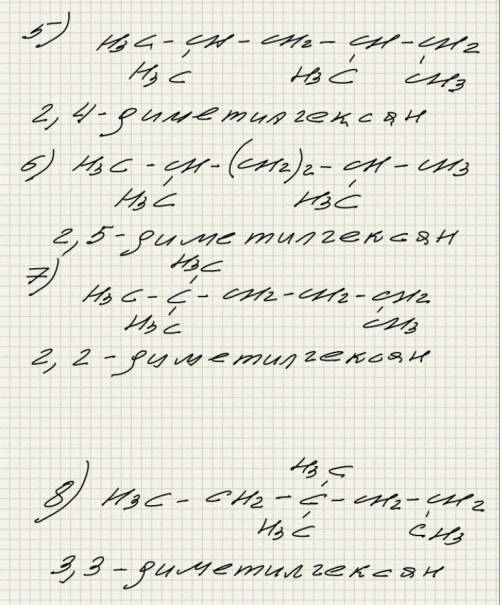 5) H3C - CH - CH2 - CH - CH2
H3C H3C CH3
2,4-диметилгексан
6) H3C - CH - (CH2)2 - CH - CH3
H3C H3C
2,5-диметилгексан
H3C
7) H3C - C - CH2 - CH2 - CH2
H3C CH3
2,2-диметилгексан
H3C
8) H3C - CH2 - C - CH2 - CH2
H3C CH3
3,3-диметилгексан